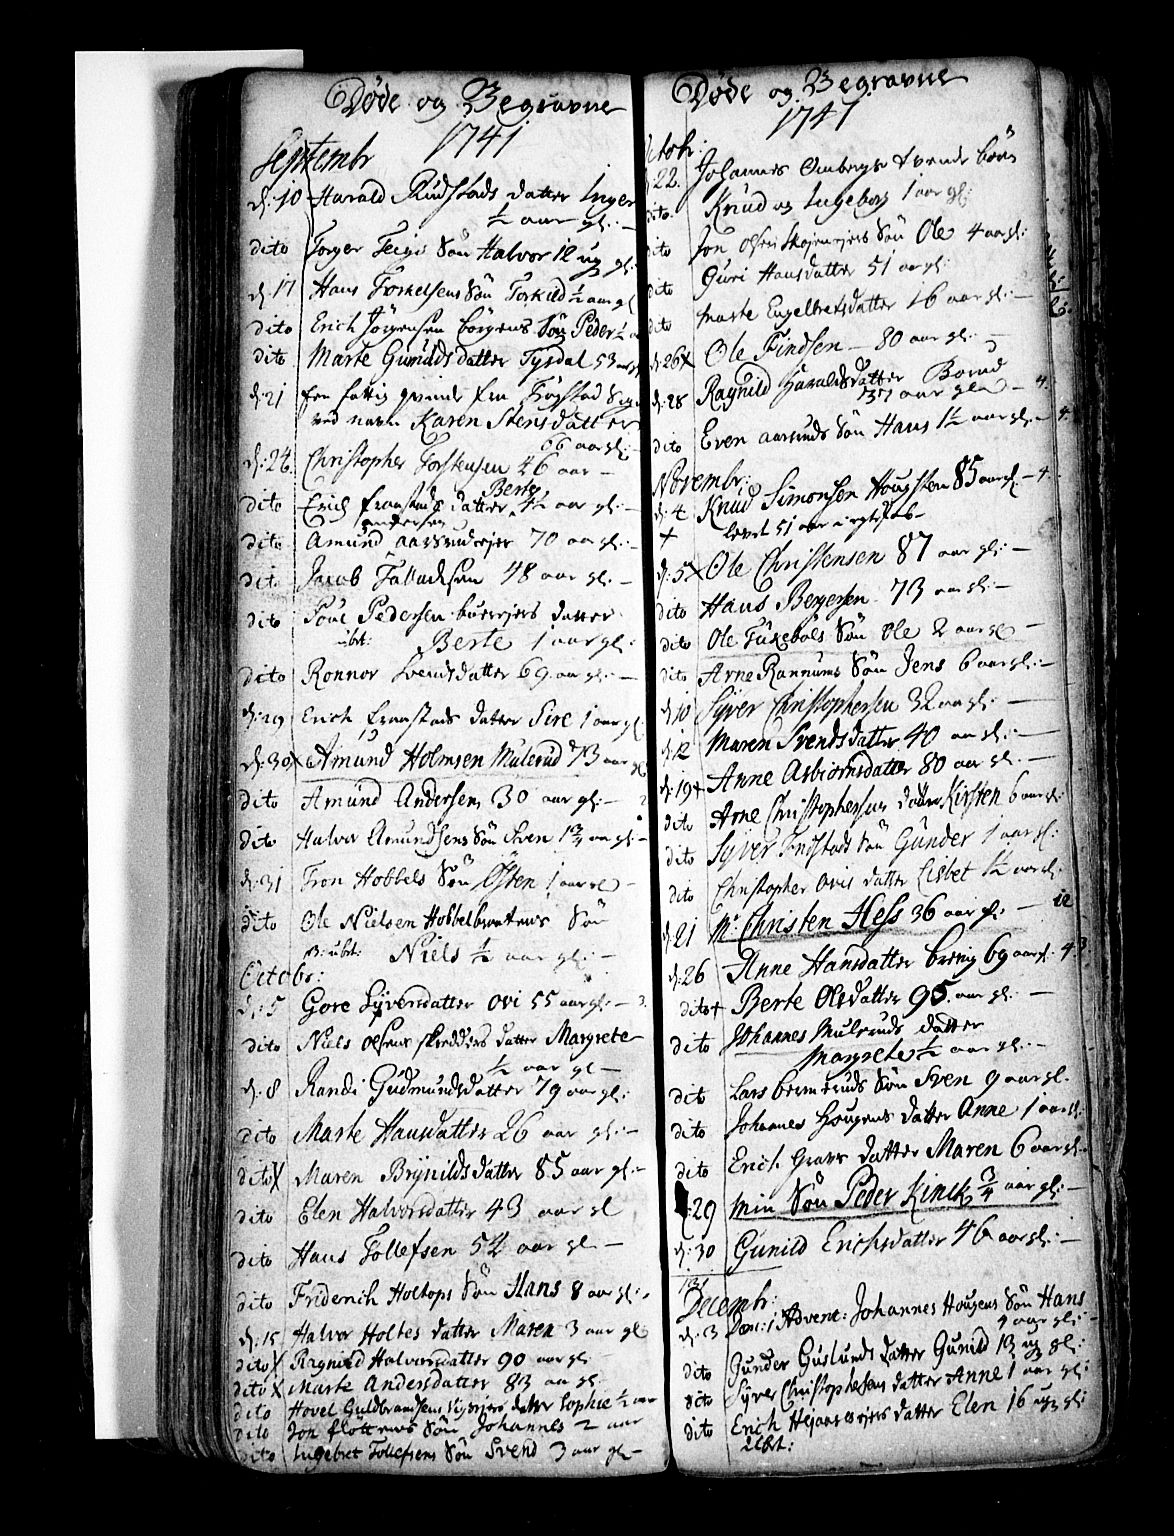 Døde og Begravne
1741
Septembr
d: 10 Harald Rudstads datter Inger
½ aar gl:
dito Torger Teigs Søn Halvor 12 ug gl:
d: 17 Hans Torkelsens Søn Torkild ½ aar gl
dito Erich Jörgensen Søn Peder ½
dito Marte Gunildsdatter Tysdal 53 aar
d: 21 fra Trøgstad Sogn
ved navn Karen Stensdatter
66 aar gl:
d: 24 Christopher Torstensen 46 aar
Berte
dito Erich fraastads datter 4½ aar gl:
andersen
dito Amund aarsrudejer 70 aar gl:
dito Jacob Talladsen 48 aar gl:
dito Poul Pedersen datter
Berte 1 aar gl:
dito Ronnor Svendsdatter 69 aar gl:
d: 29 Erich fraastads datter Sire 1 aar gl
d: 30 x Amund Holmsen Mulerud 73 aar gl
dito Amund Andersen 30 aar gl:
dito Halvor Amundsens Søn Sven 1¾ aar gl:
d: 31 Tron Hobbels Søn Østen 1 aar gl
dito Ole Nielsen Hobbelbraatens Søn
Niels ½ aar gl:
Octobr:
d: 5 Gore Syversdatter Ovi 55 aar gl: 3
dito Niels Olsens skredders datter Margrete
½ aar gl
d: 8 Randi Gudmundsdatter 79 aar gl:
dito Marte Hansdatter 26 aar gl:
dito X Maren Brynildsdatter 85 aar gl:
dito Elen Halvorsdatter 43 aar gl
dito Hans Tollefsen 54 aar gl:
dito Friderich Holtops Søn Hans 8 aar gl:
d: 15 Halvor Holtes datter Maren 3 aar gl
dito X Ragnild Halvorsdatter 90 aar gl
dito X Marte Andersdatter 83 aar gl
dito Hovel Guldbrandsens datter Sophie ½ aar
dito Jon fløttens Søn Johannes 2 aar
dito Ingebret Tollefsens Søn Svend 3 aar gl
Døde og Begravne
1741
Octobr:
d: 22. Johannes Ombergs tvende børn
dito Knud og Ingeborg 1 aar gl:
dito Jon Olsen Søn Ole 4 aar gl:
dito Guri Hansdatter 51 aar gl:
dito Marte Engelbretsdatter 16 aar gl:
d: 26 x Ole Findsen 80 aar gl:
d: 28 Ragnild Haraldsdatter Borud
37 aar gl 4
dito Even aarsruds Søn Hans 1½ aar gl: 4
Novembr:
d: 4 Knud Simonsen Hougsten 85 aar gl: 4
+ levet 51 aar i egteskab
d: 5 x Ole Christensen 87 aar gl:
dito Hans Bergersen 73 aar gl:
dito Ole Tuxebøls Søn Ole 2 aar gl
dito Arne Rannums Søn Jens 6 aar gl:
d: 10 Syver Christophersen 32 aar gl:
d: 12 Maren Svendsdatter 40 aar gl:
d: 19 + Anne Asbiornsdatter 80 aar gl:
dito Arne Christophersens datter Kirsten 6 aar gl:
dito Syver Indstads Søn Gunder 1 aar gl:
dito Christopher Ovis datter Lisbet 1½ aar gl:
d: 21 Mr Christen Hess 36 aar gl: 12
d: 26 Anne Hansdatter brevig 69 aar gl: 43
dito + Berte Olsdatter 95 aar gl:
dito Johannes Mulruds datter
Margrete ½ aar gl:
dito Lars Søn Sven 9 aar gl.
dito Johannes Hougens datter Anne 1 aar gl:
dito Erich Gravs datter Maren 6 aar gl:
d: 29 min Søn Peder Kinck ¾ aar gl:
d: 30 Gunild Erichsdatter 46 aar gl:
Decembr:
d: 3 Dom: 1 Advent: Johannes Hougens Søn Hans
aar gl:
dito Gunder Guslunds datter Gunild 13 ug gl:
dito Syver Christophersens datter Anne 1 aar gl:
dito Erich datter Elen 16 ug gl: